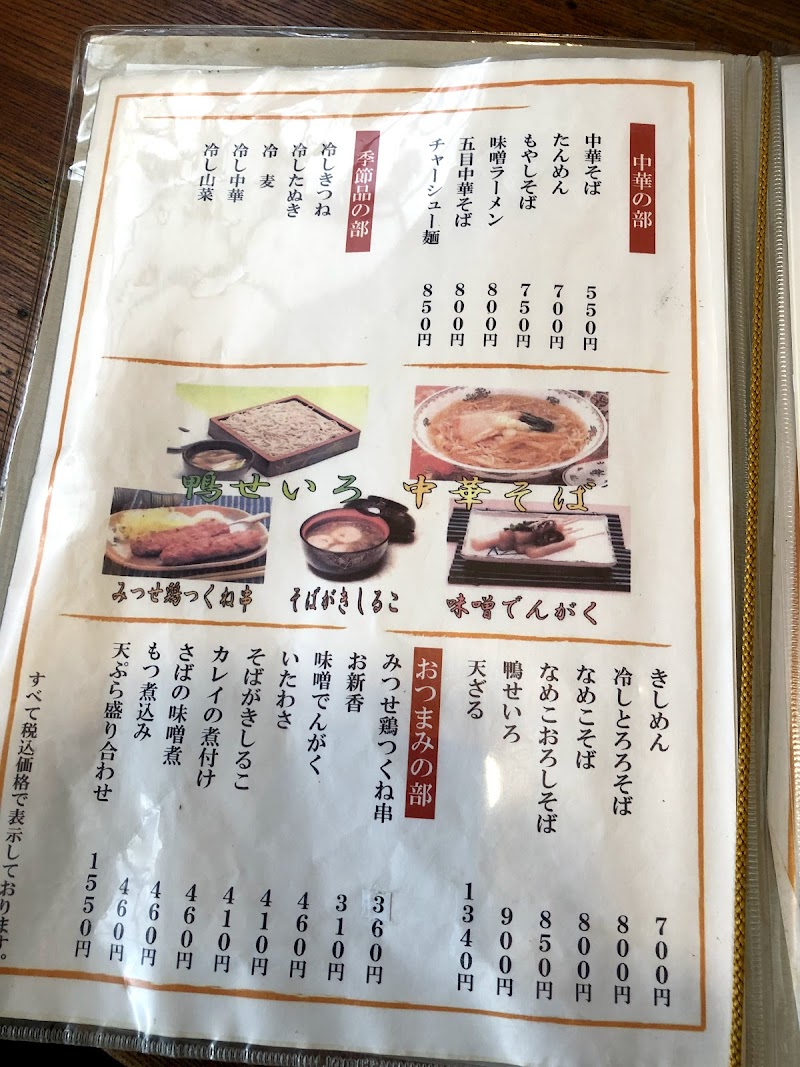 中華の部
中華そば 550円
たんめん 700円
もやしそば 750円
味噌ラーメン 800円
五目中華そば 800円
チャーシュー麺 850円
季節品の部
冷しきつね
冷したぬき
冷 麦
冷し中華
冷し山菜
鴨せいろ
中華そば
みつせ鶏つくね串
そばがきしるこ
味噌でんがく
きしめん 700円
冷しとろろそば 800円
なめこそば 800円
なめこおろしそば 850円
鴨せいろ 900円
天ざる 1340円
おつまみの部
みつせ鶏つくね串 360円
お新香 310円
味噌でんがく 460円
いたわさ 410円
そばがきしるこ 410円
カレイの煮付け 460円
さばの味噌煮 460円
もつ煮込み 460円
天ぷら盛り合わせ 1550円
すべて税込価格で表示しております。